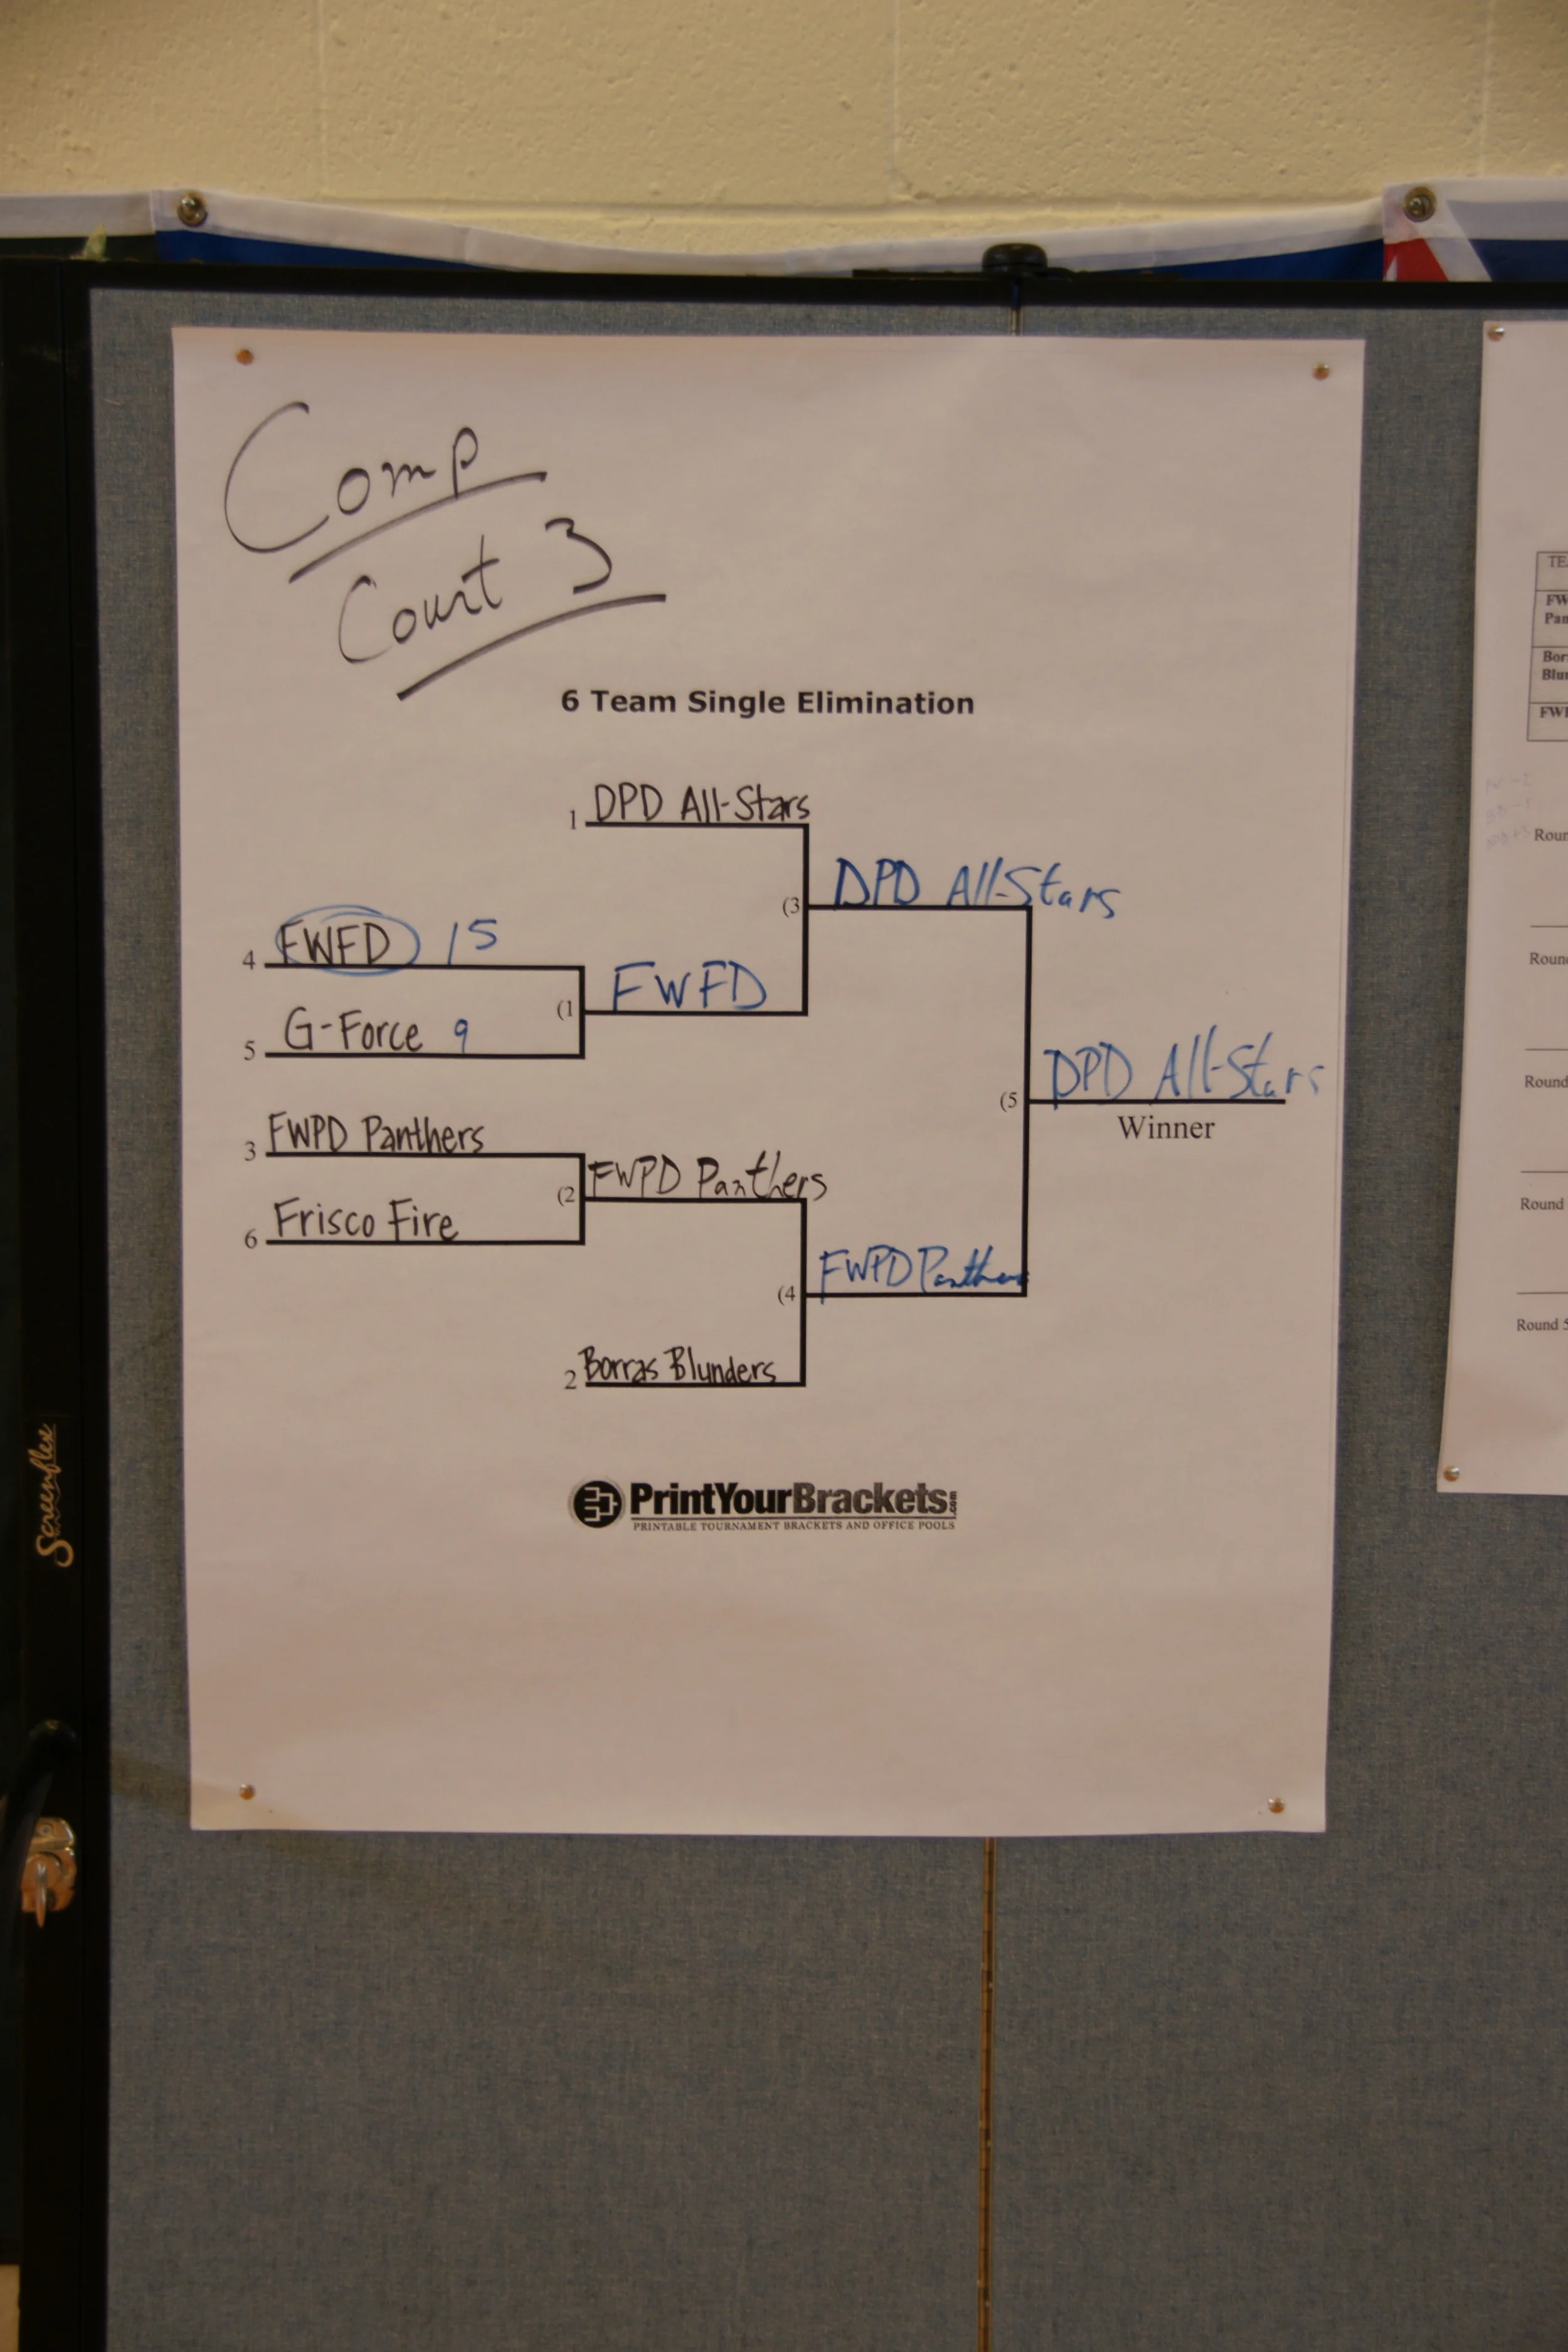 Comp
Court 3
6 Team Single Elimination
1 DPD All-Stars
(3 DPD All-Stars
4 FWFD 15
(1 FWFD
5 G-Force 9
(5 DPD All-Stars
Winner
3 FWPD Panthers
(2 FWPD Panthers
6 Frisco Fire
(4 FWPD Panthers
2 Borras Blunders
PrintYourBrackets.com
PRINTABLE TOURNAMENT BRACKETS AND OFFICE POOLS
Screenflex
Round
Round
Round 5